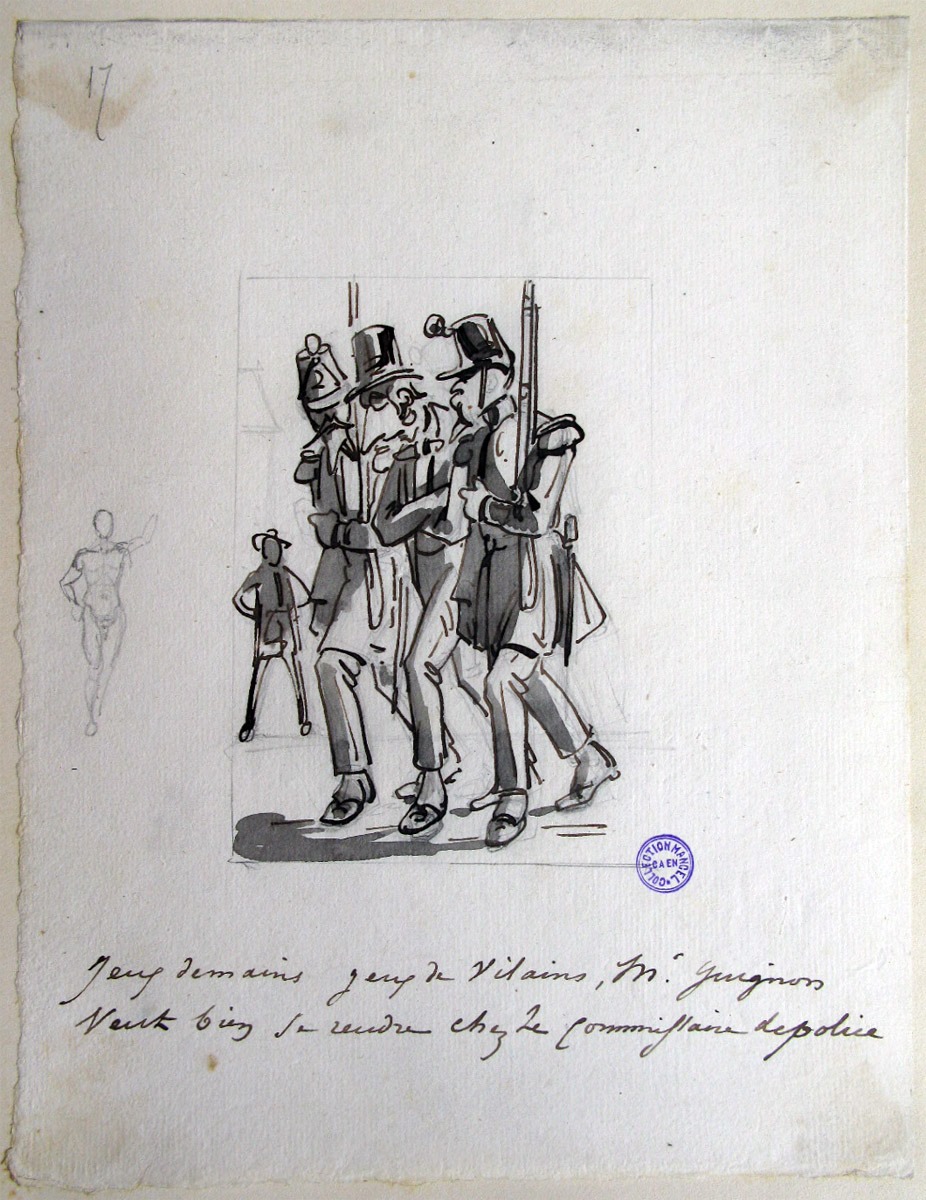 17
COLLECTION MANCEL
CAEN
Jeux demains jeux de Vilains, Mr. Guignon
Veut bien se rendre chez Le Commissaire depolice